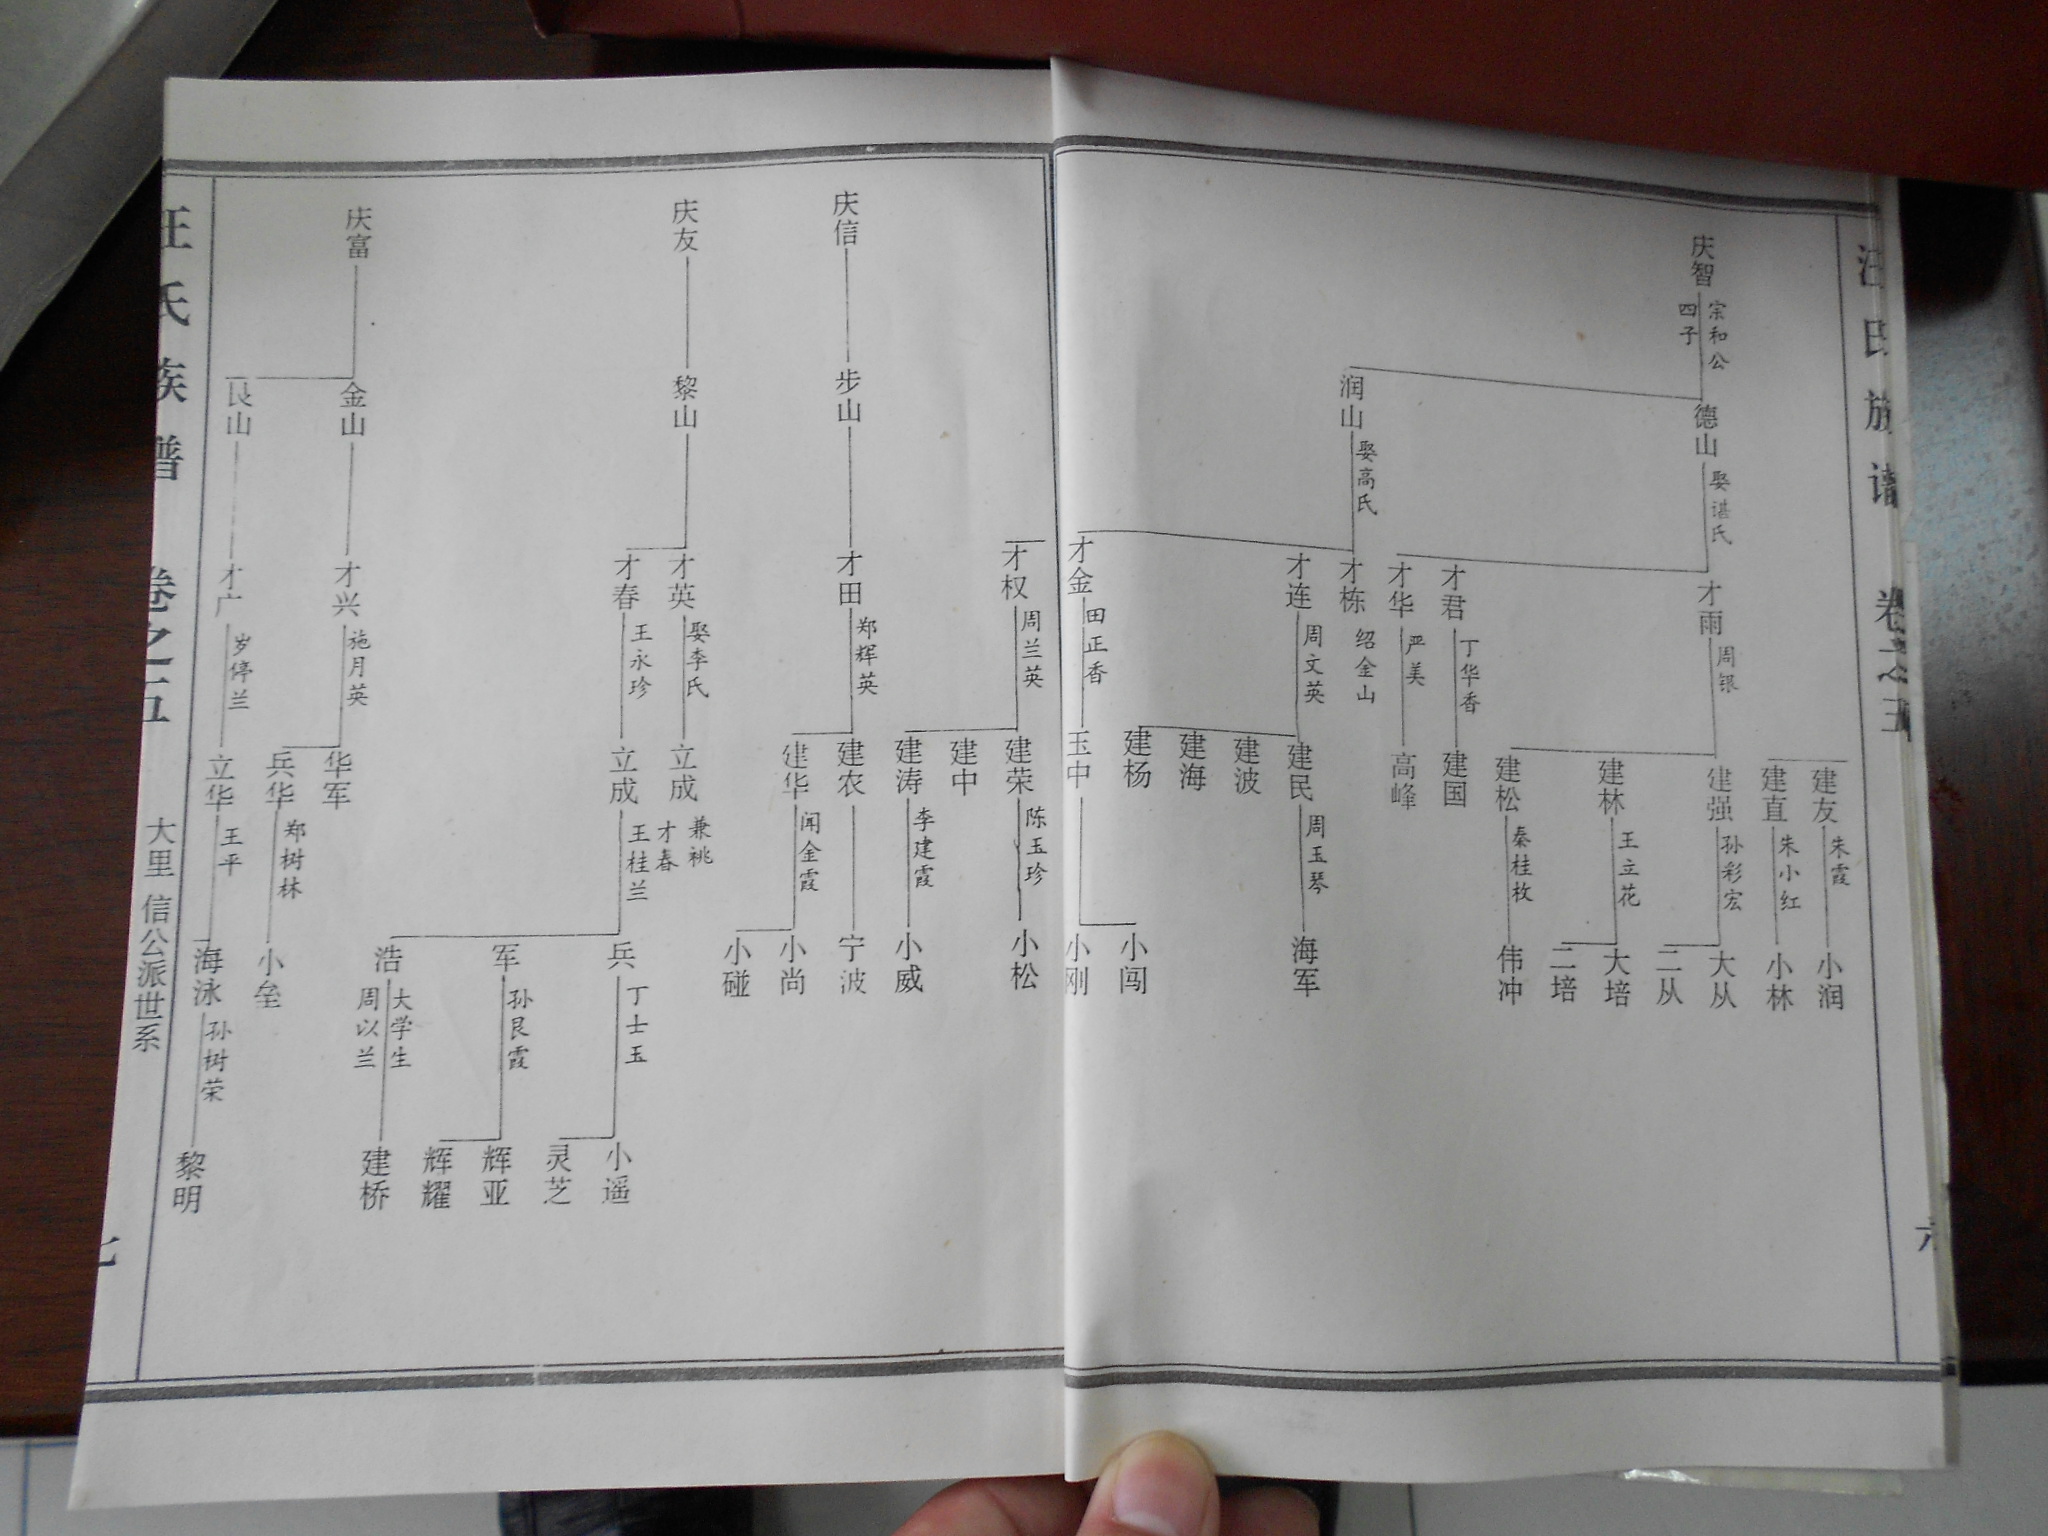 汪氏族谱
卷之五
六
庆智
宗和公
四子
德山
娶谌氏
润山
娶高氏
才雨
周银
才君
丁华香
才华
严美
才栋
绍金山
才连
周文英
才金
田正香
建友
朱霞
建直
朱小红
建强
孙彩宏
建林
王立花
建松
秦桂枚
建国
高峰
建民
周玉琴
建波
建海
建杨
玉中
小润
小林
大从
二从
大培
二培
伟冲
海军
小闯
小刚
庆信
步山
才权
周兰英
才田
郑辉英
建荣
陈玉珍
建中
建涛
李建霞
建农
建华
闻金霞
小松
小威
宁波
小尚
小碰
庆友
黎山
才英
娶李氏
才春
王永珍
立成
兼祧
才春
立成
王桂兰
兵
丁士玉
军
孙艮霞
浩
大学生
周以兰
小遥
灵芝
辉亚
辉耀
建桥
庆富
金山
艮山
才兴
施月英
才广
岁停兰
华军
兵华
郑树林
立华
王平
小垒
海泳
孙树荣
黎明
汪氏族谱
卷之五
大里 信公派世系
七